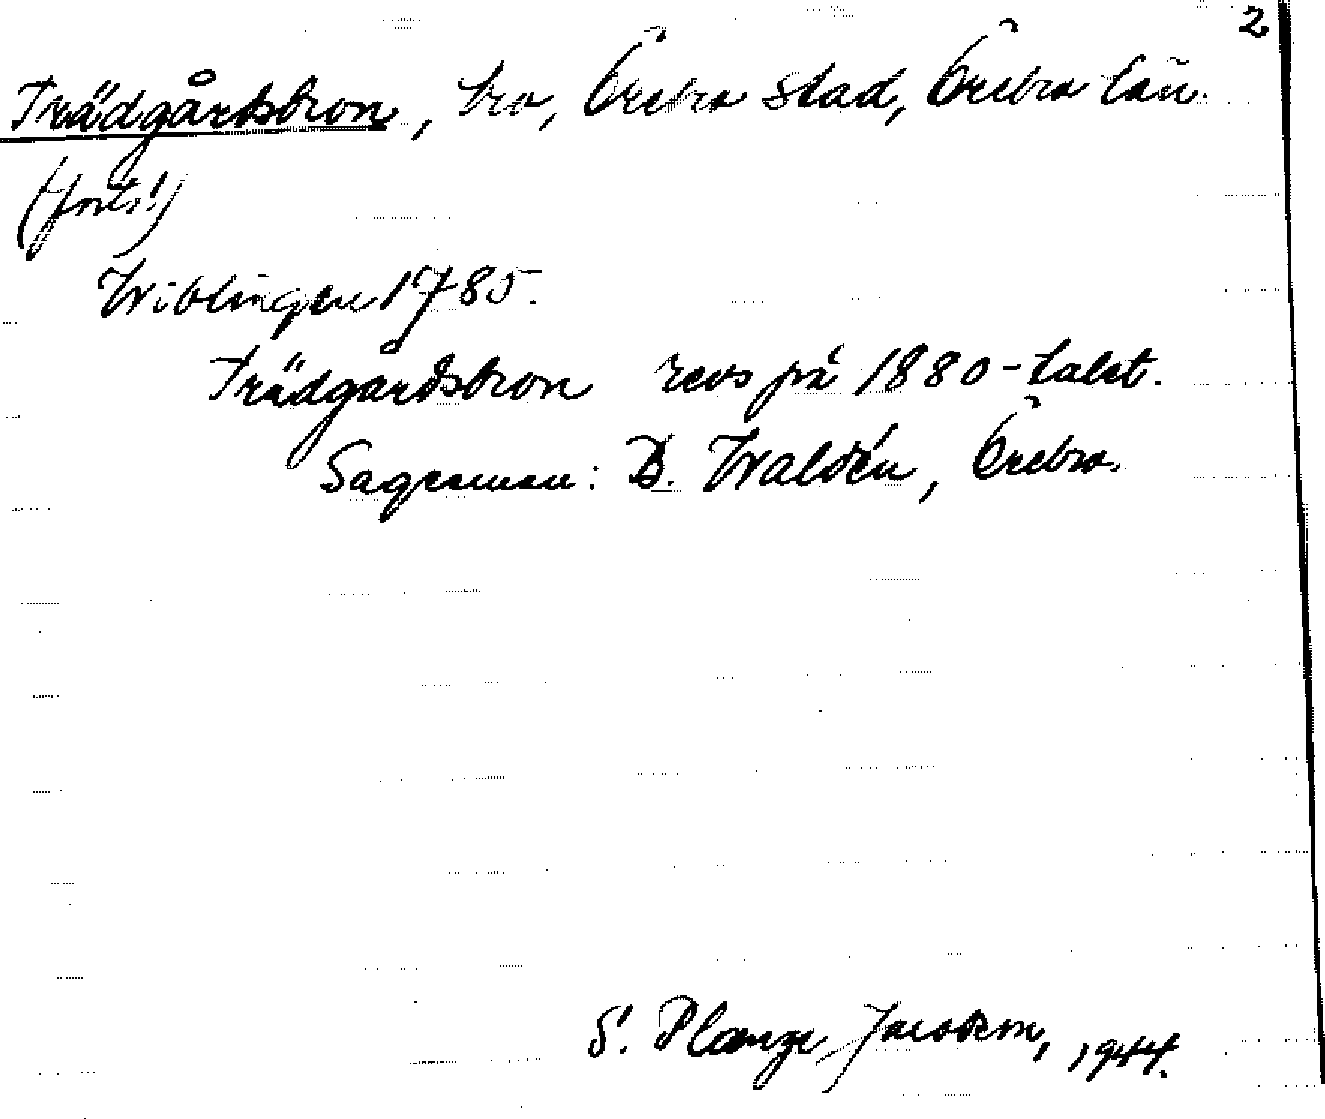 2
Trädgårdsbron, bro, Örebro stad, Örebro län.
(forts!)
Wiblingen 1785.
Trädgårdsbron revs på 1880-talet.
Sagesman: B. Waldén, Örebro.
S. Plange Jacobson, 1944.